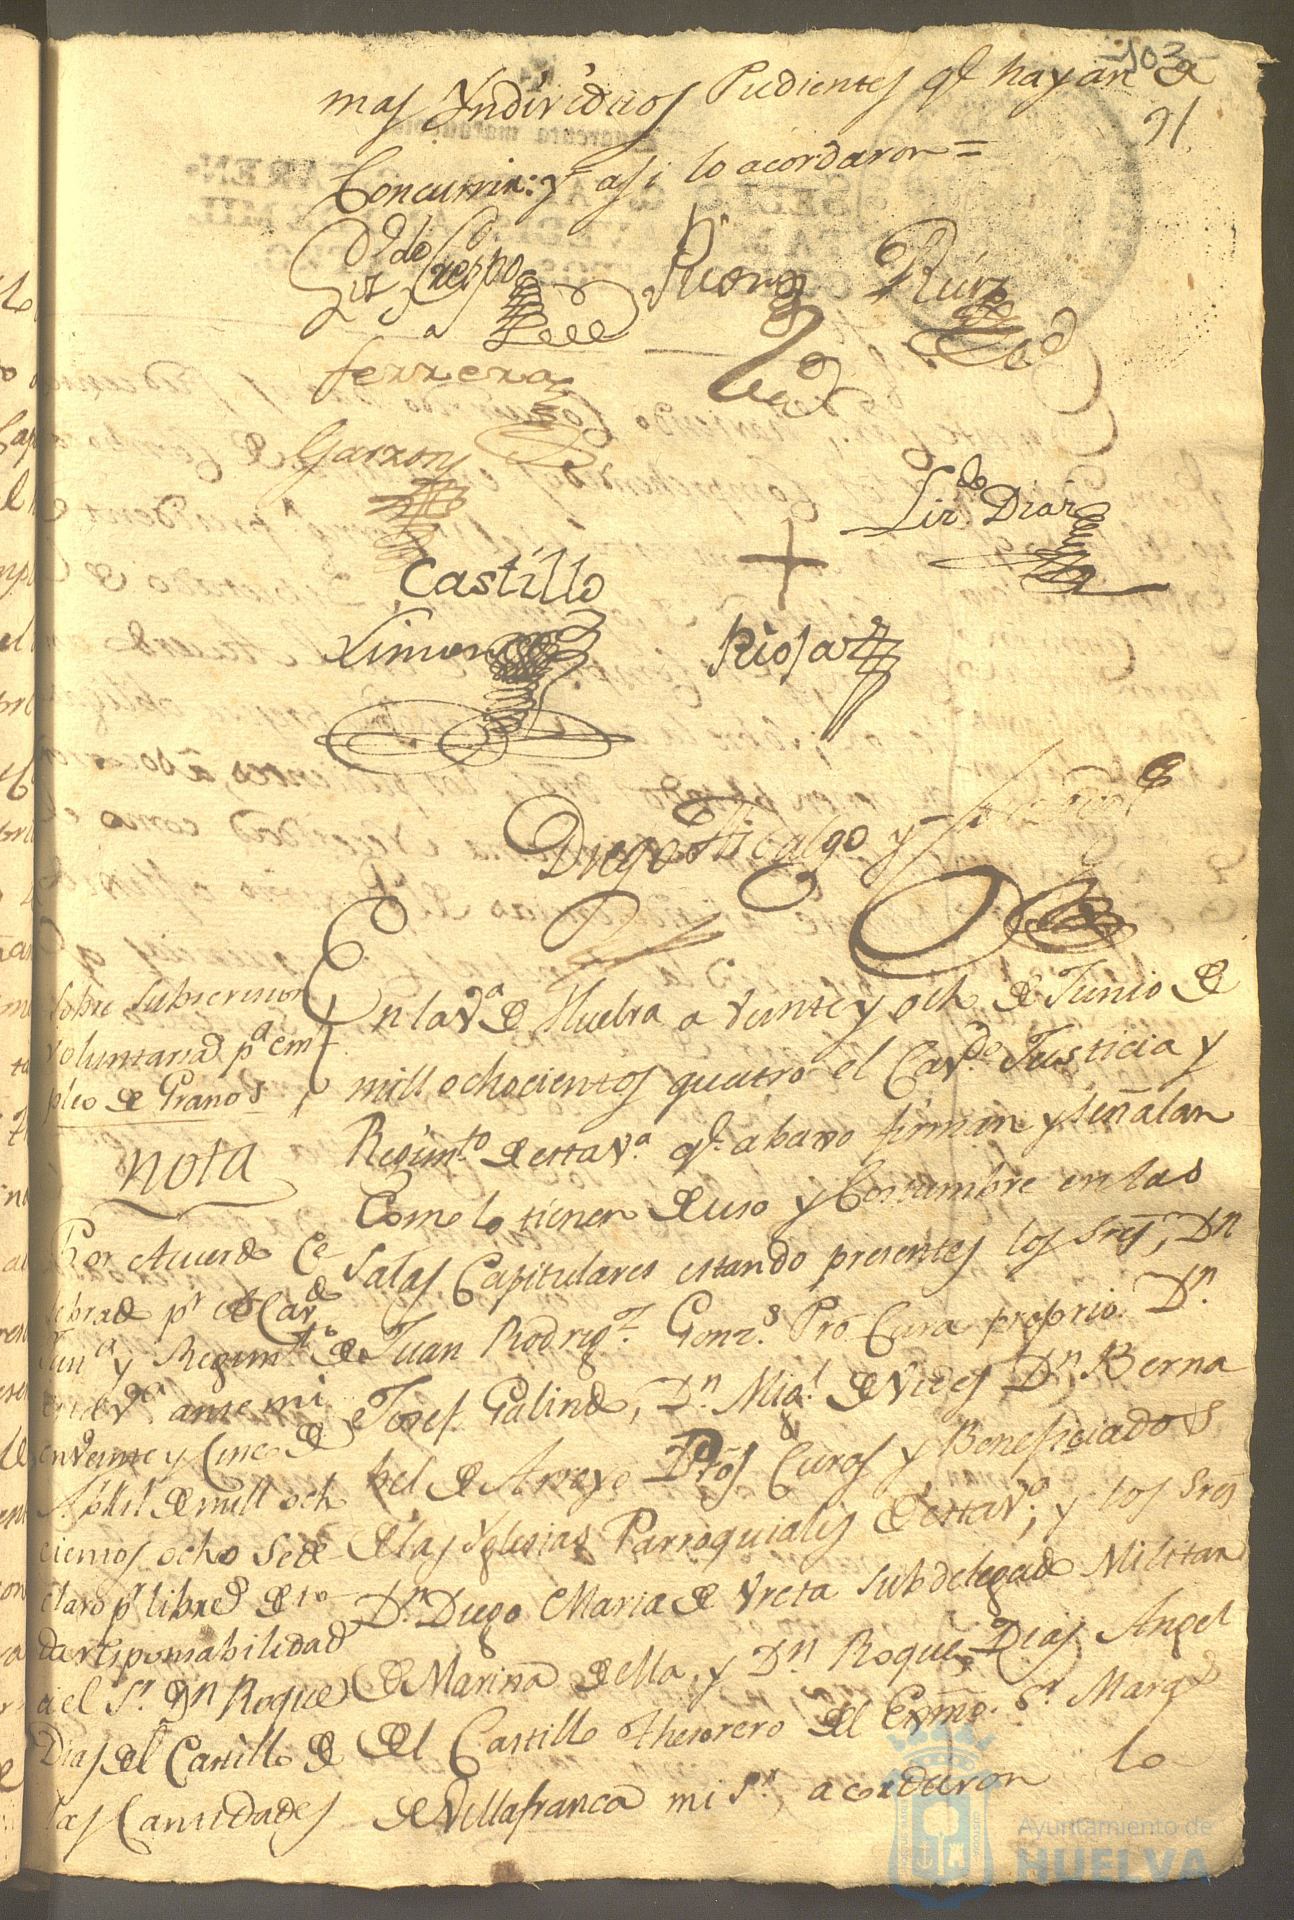 103
91
mas Yndividuos Pudientes qe. hayan de
Concurrir: y asi lo acordaron =
Lizdo. de Crespo
Ruiz
ferrera
Garzon
Lizdo. Diaz
Castillo
+
Ximenez
Diego Hidalgo y
Sobre Subscripcion
voluntaria pa. em-
pleo de Granos
En la Va. de Huelva a veinte y ocho de Junio de
mill ochocientos quatro el Cavdo. Justicia y
Regimto. de esta Va. qe. abaxo firman y señalan
Como lo tienen de uso y Costumbre en las
Salas Capitulares estando presentes los Sres. Dn.
Juan Rodrigz. Gonzs. Pro. Cura proprio Dn.
Josef Galindo, Dn. Migl. de Vides Dn. Berna
bel de Arroyo Pros. Curas y Beneficiados
de las Yglesias Parroquiales de esta Va., y los Sres.
Dn. Diego Maria de Vreta Subdelegado Militar
de Marina de ella, y Dn. Roque Dias Angel
del Castillo Thesorero del Exmo. Sr. Marqs.
de Villafranca mi Sr., acordaron lo
nota
Por Acuerdo Ce-
lebrado pr. el Cavdo.
Jusa. y Regimto. de
esta Va. ante mi
en veinte y Cinco de
Abril de mill ocho
cientos ocho Se de-
claro pr. libre de to-
da responsabilidad
a el Sr. Dn. Roque
Dias del Castillo de
las Cantidades
Ayuntamiento de
HUELVA